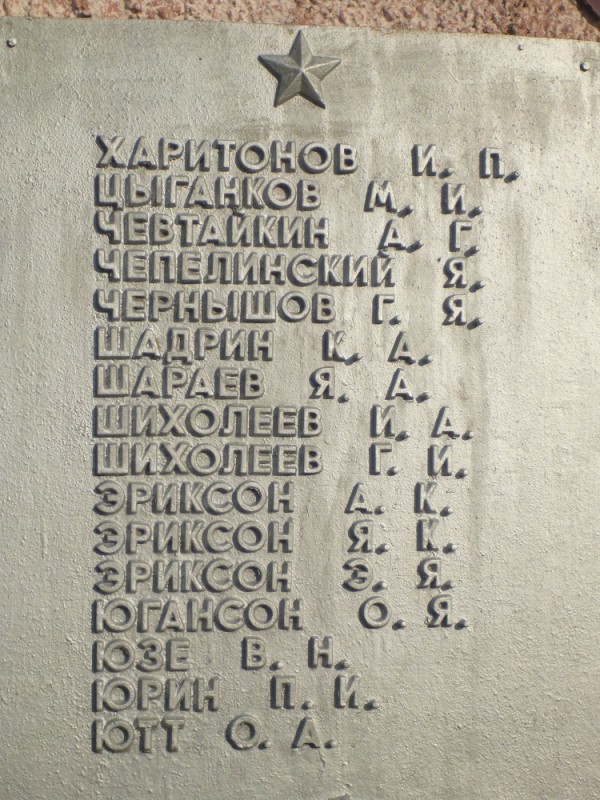 ХАРИТОНОВ И. П.
ЦЫГАНКОВ М. И.
ЧЕВТАЙКИН А. Г.
ЧЕПЕЛИНСКИЙ Я.
ЧЕРНЫШОВ Г. Я.
ШАДРИН К. А.
ШАРАЕВ Я. А.
ШИХОЛЕЕВ И. А.
ШИХОЛЕЕВ Г. И.
ЭРИКСОН А. К.
ЭРИКСОН Я. К.
ЭРИКСОН Э. Я.
ЮГАНСОН О. Я.
ЮЗЕ В. Н.
ЮРИН П. И.
ЮТТ О. А.